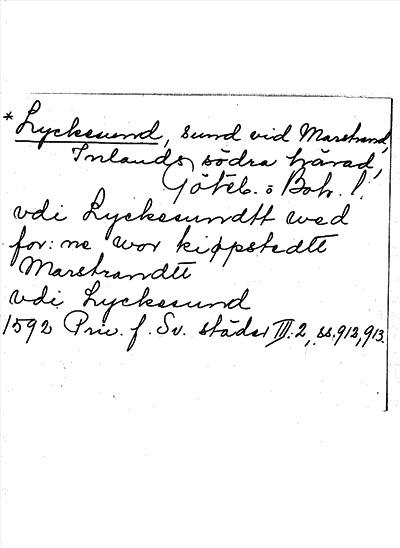 * Lyckesund, sund vid Marstrand,
Inlands södra härad,
Göteb. o Boh. l.
vdi Lyckesundtt wed
for:ne wor kiøpstedtt
Marstrandtt
vdi Lyckesund
1592 Priv. f. Sv. städer III:2, ss.912,913.